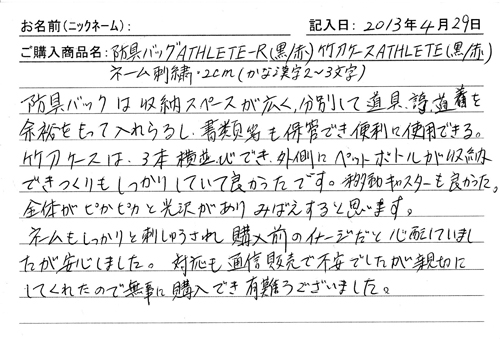 お名前(ニックネーム): 記入日: 2013年4月29日
ご購入商品名: 防具バッグATHLETE-R(黒/赤) 竹刀ケースATHLETE(黒/赤)
ネーム刺繍・2cm(かな漢字2~3文字)
防具バックは収納スペースが広く、分別して道具、道着を
余裕をもって入れらるし、書類等も併習でき便利に使用できる。
竹刀ケースは、3本横並びでき、外側にペットボトルが収納
できつくりもしっかりしていて良かったです。移動キャスターも良かった。
全体がピカピカと光沢がありみばえすると思います。
ネームもしっかりと刺しゅうされ購入前のイメージだと心配していまし
たが安心しました。対応も通信販売で不安でしたが親切に
してくれたので無事に購入でき有難うございました。